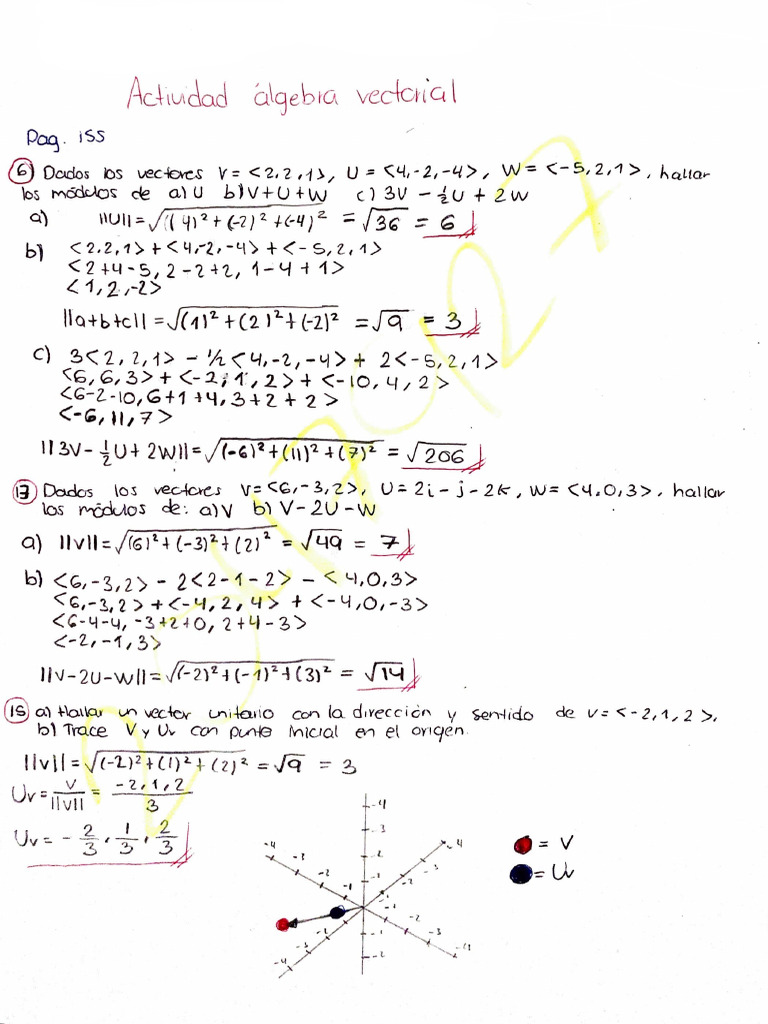 Actividad álgebra vectorial
Pag. 155
6) Dados los vectores V = <2,2,1>, U = <4,-2,-4>, W = <-5,2,1>, hallar
los módulos de a) U b) V+U+W c) 3V - ½U + 2W
a) ||U|| = √(4)²+(-2)²+(-4)² = √36 = 6
b) <2,2,1> + <4,-2,-4> + <-5,2,1>
<2+4-5, 2-2+2, 1-4+1>
<1,2,-2>
||a+b+c|| = √(1)²+(2)²+(-2)² = √9 = 3
c) 3<2,2,1> - ½<4,-2,-4> + 2<-5,2,1>
<6,6,3> + <-2,1,2> + <-10,4,2>
<6-2-10, 6+1+4, 3+2+2>
<-6,11,7>
||3V - ½U + 2W|| = √(-6)²+(11)²+(7)² = √206
13) Dados los vectores V=<6,-3,2>, U=2i-j-2k, W=<4,0,3>, hallar
los módulos de: a) V b) V-2U-W
a) ||V|| = √(6)²+(-3)²+(2)² = √49 = 7
b) <6,-3,2> - 2<2-1-2> - <4,0,3>
<6,-3,2> + <-4,2,4> + <-4,0,-3>
<6-4-4, -3+2+0, 2+4-3>
<-2,-1,3>
||V-2U-W|| = √(-2)²+(-1)²+(3)² = √14
15) a) Hallar un vector unitario con la dirección y sentido de v=<-2,1,2>.
b) Trace V y Uv con punto inicial en el origen.
||V|| = √(-2)²+(1)²+(2)² = √9 = 3
Uv = V/||V|| = -2,1,2/3
Uv = -2/3, 1/3, 2/3
-4
-3
-2
-1
-4
-3
-2
-1
-4
-3
-2
-1
-1
-2
-3
-4
-1
-2
-3
-4
-1
-2
= V
= Uv